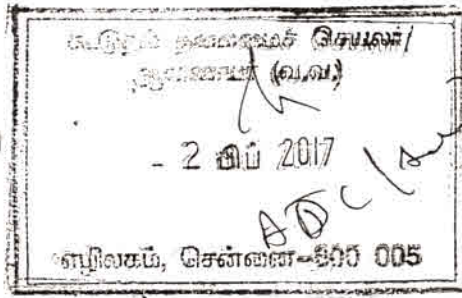 கூடுதல் தலைமைச் செயலர்/
ஆணையர் (வ.வ.)
- 2 பிப் 2017
ADC/
எழிலகம், சென்னை-600 005